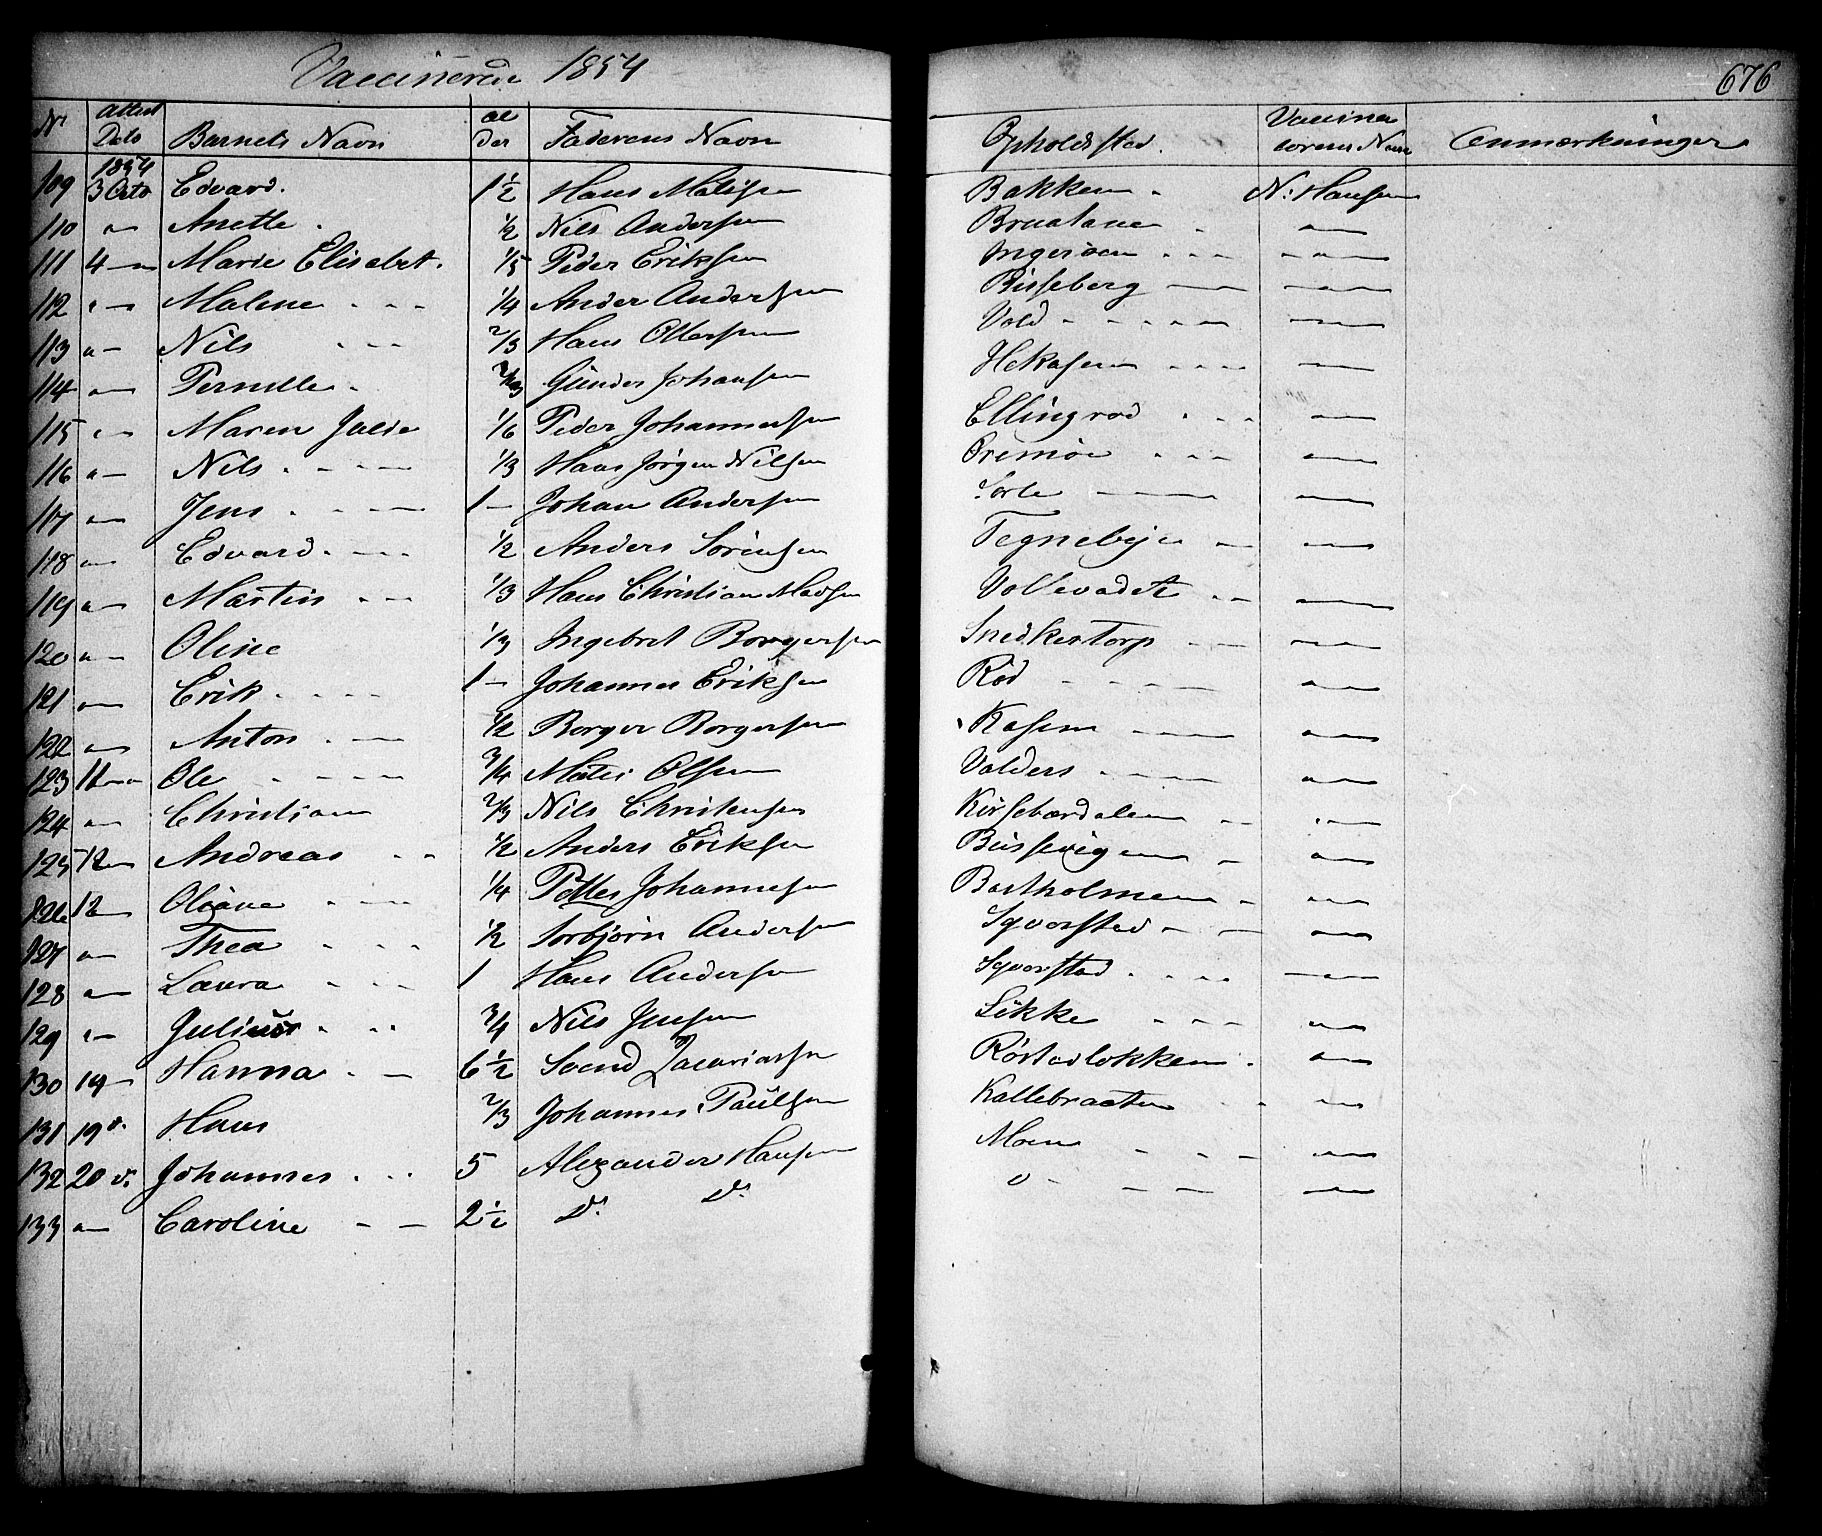 Vaccinerede 1854
676
Nr Attest Dato Barnets Navn Alder Faderens Navn Opholdssted. Vaccinatorens Navn Anmærkninger
109 1854 3 Octo Edvard. 1 1/2 Hans Matisen Bakken N: Hansen
110 " — Anette. 1/2 Nils Andersen Braatane " —
111 4 — " Marie Elisabet. 1/5 Peder Eriksen Ingeroen - - - " —
112 " — Malene - - - 1/4 Ander Andersen Bisseberg — — " —
113 " — Nils - - - 2/3 Hans Ottersen Vold - - - - " —
114 " — Pernille. Gunder Johansen Hekasen - - - " —
115 " — Maren Julie 1/6 Peder Johannesen Ellingrod - - - " —
116 " — Nils. - - - 1/3 Hans Jørgen Nilsen Oremoe - - - " —
117 " — Jens. - - - 1 - Johan Andersen Sorle — — " —
118 " — Edvard. - - - 1/2 Anders Sørensen Tegnebyen — " —
119 " — Martin - - - 1/3 Hans Christian Madsen Vollevadet - - " —
120 " — Oline 1/3 Ingebret Borgersen Snedkertorp - - " —
121 " — Erik. - - - 1 - Johannes Eriksen Rød - - - " —
122 " — Anton. - — 1/2 Borger Borgersen Kasen - - - " —
123 11 — " Ole - - - 3/4 Matis Olsen Valders - - - " —
124 " — Christian 2/3 Nils Christensen Kirsebærdalen - - " —
125 12 — Andreas - - 1/2 Anders Eriksen Bussevigen — - " —
126 12 — Oleane - - - 1/4 Petter Johannesen Bartholmen — - " —
127 " — Thea - - - 1/2 Torbjørn Andersen Sqvorsted — — " —
128 " — Laura - - - 1 Hans Andersen Sqvorstad. - - - " —
129 " — Julius - - - 3/4 Nils Jensen Sikke - - - " —
130 19 — Hanna. - — 6 1/2 Svend Zacariassen Rørstadlokken. " —
131 19 d. Hans 2/3 Johannes Paulsen Kallebraaten - - " —
132 20 d. Johannes. - - 5 Alexander Hansen Moen - - - " —
133 " — Caroline - — 2 1/2 D. D. " - - - " —